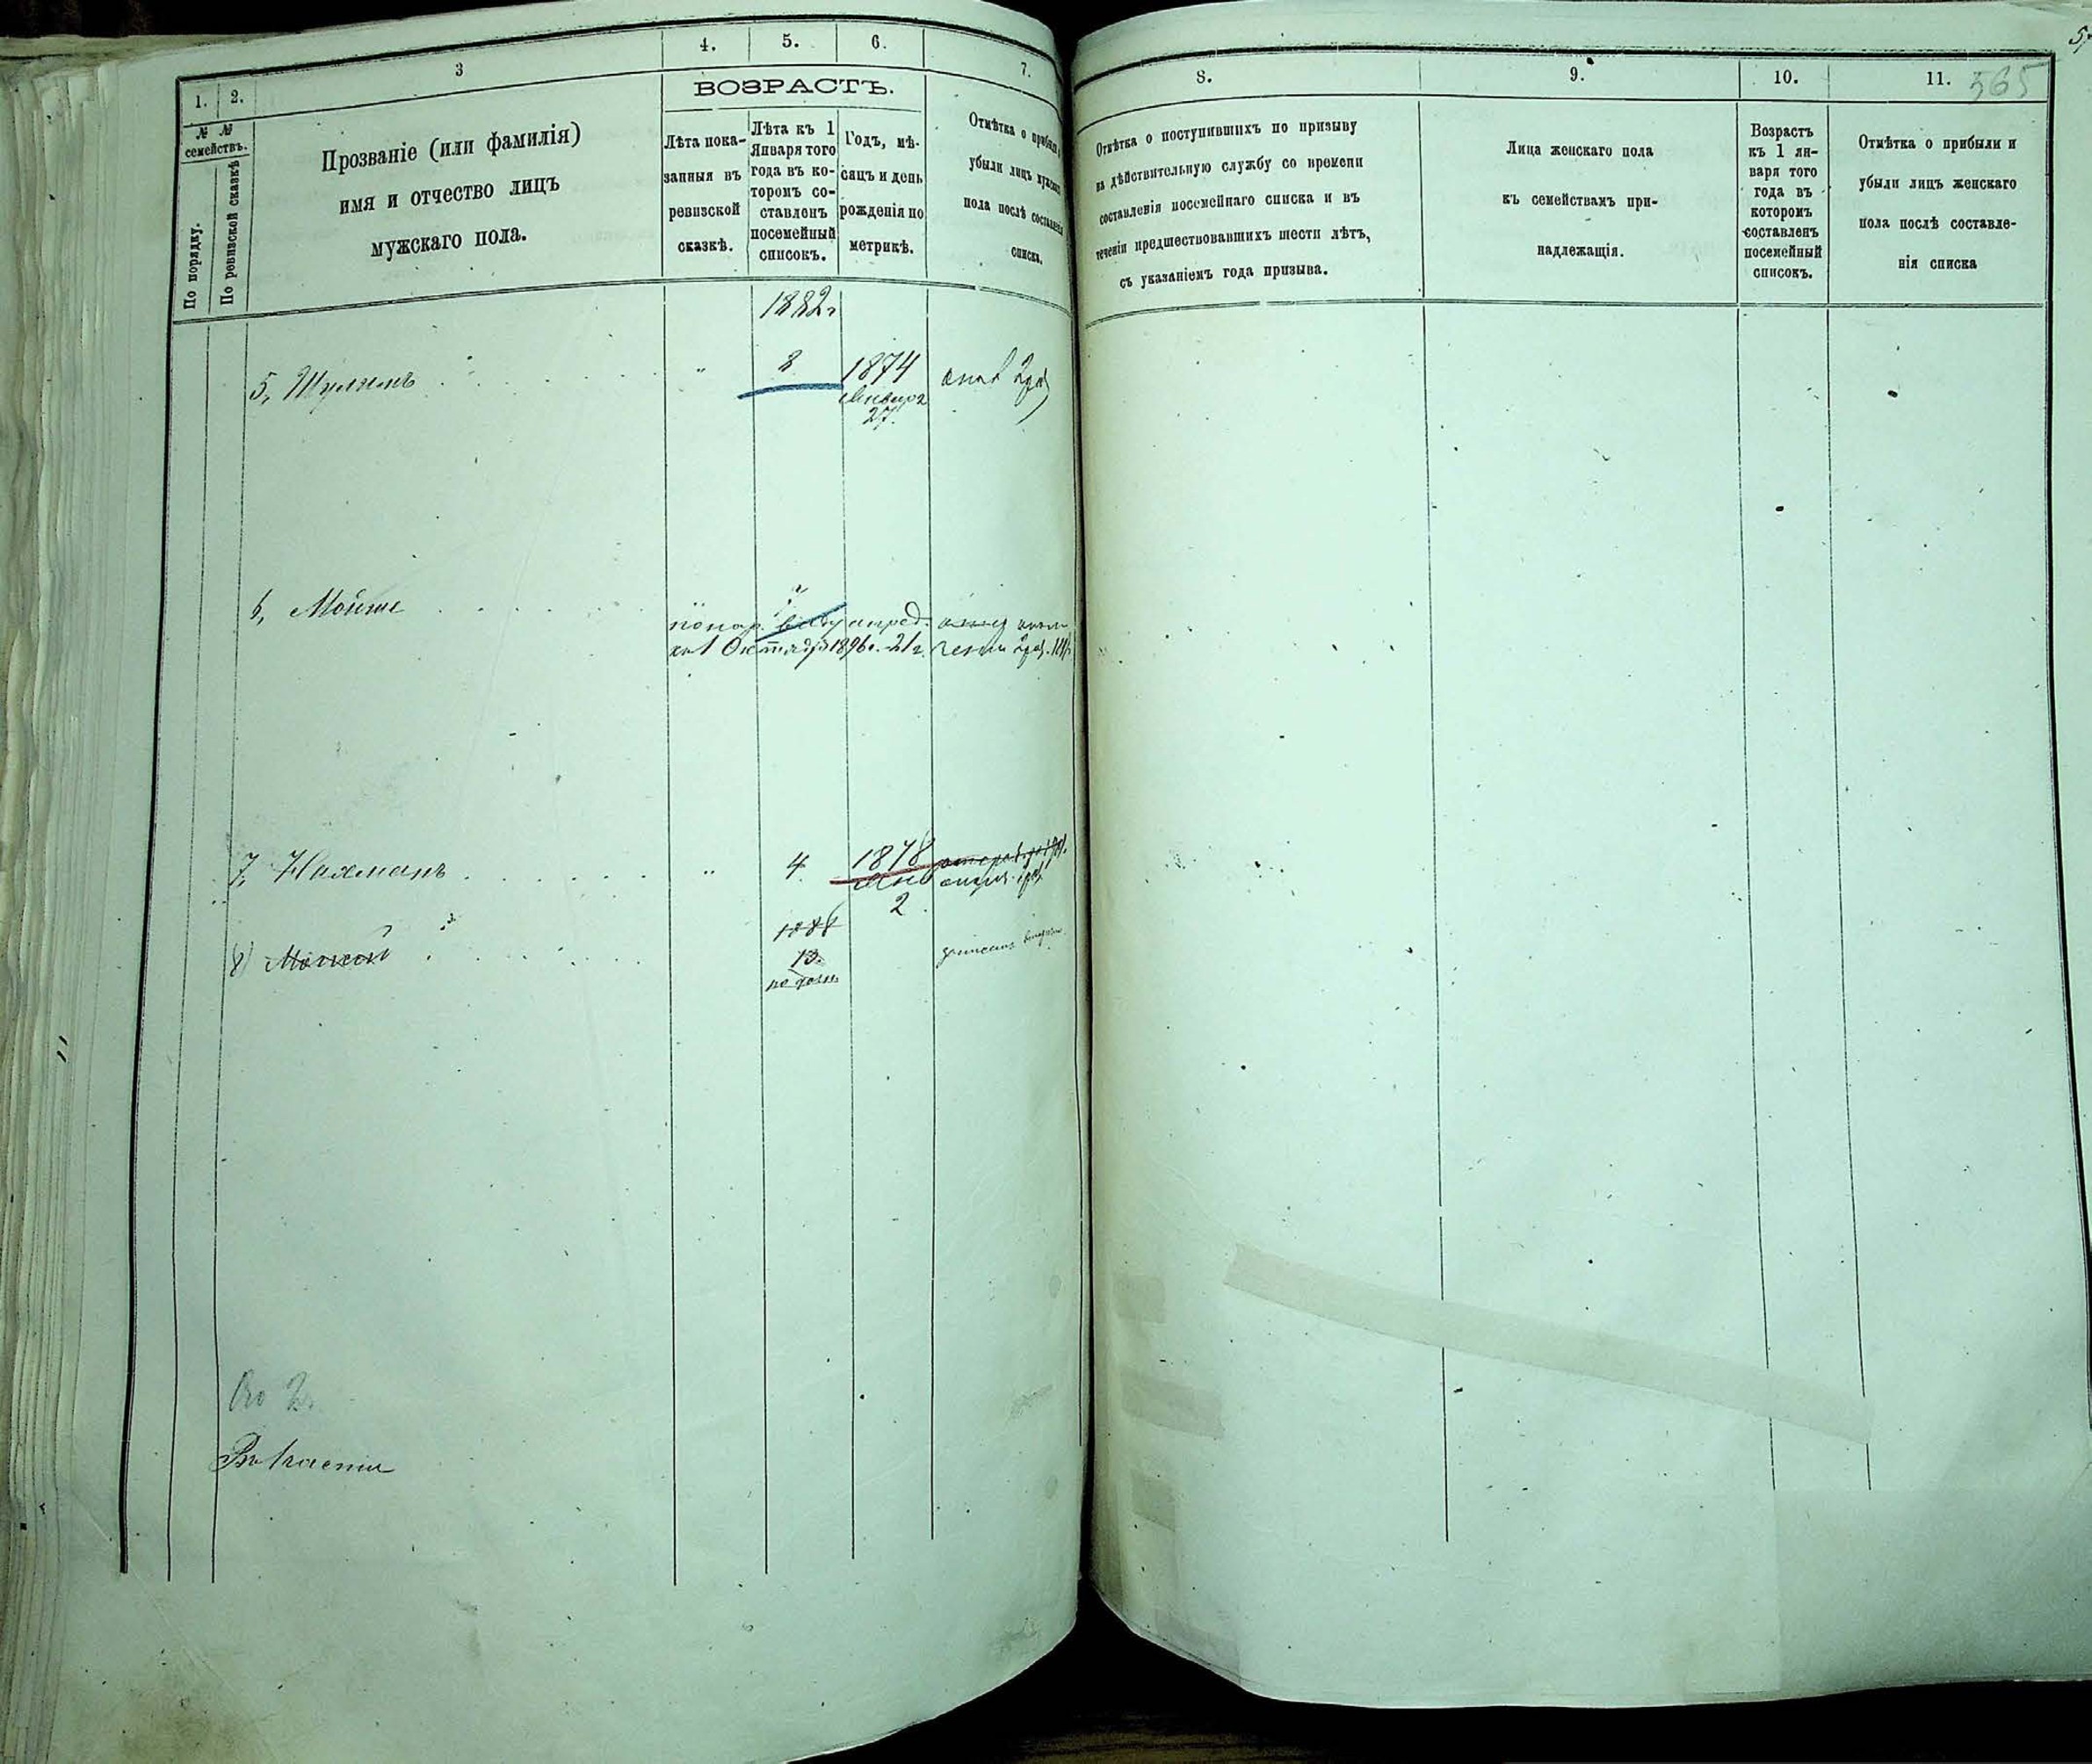 1.
2.
3
4.
5.
6.
7.
№ №
семействъ.
По порядку.
По ревизской сказкѣ
Прозваніе (или фамилія)
имя и отчество лицъ
мужскаго пола.
ВОЗРАСТЪ.
Лѣта пока-
занныя въ
ревизской
сказкѣ.
Лѣта къ 1
Января того
года въ ко-
торомъ со-
ставленъ
посемейный
списокъ.
Годъ, мѣ-
сяцъ и день
рожденія по
метрикѣ.
Отмѣтка о прибыли и
убыли лицъ мужскаго
пола послѣ составленія
списка.
1882г
5, Шулимъ " 8 1874
Января
27.
6, Мойше
къ 1 Октября 1896г. 21г.
7, Нахманъ " 4 1878
2
8) 13.
8.
9.
10.
11. 365
Отмѣтка о поступившихъ по призыву
на дѣйствительную службу со времени
составленія посемейнаго списка и въ
теченіи предшествовавшихъ шести лѣтъ,
съ указаніемъ года призыва.
Лица женскаго пола
къ семействамъ при-
надлежащія.
Возрастъ
къ 1 ян-
варя того
года въ
которомъ
составленъ
посемейный
списокъ.
Отмѣтка о прибыли и
убыли лицъ женскаго
пола послѣ составле-
нія списка